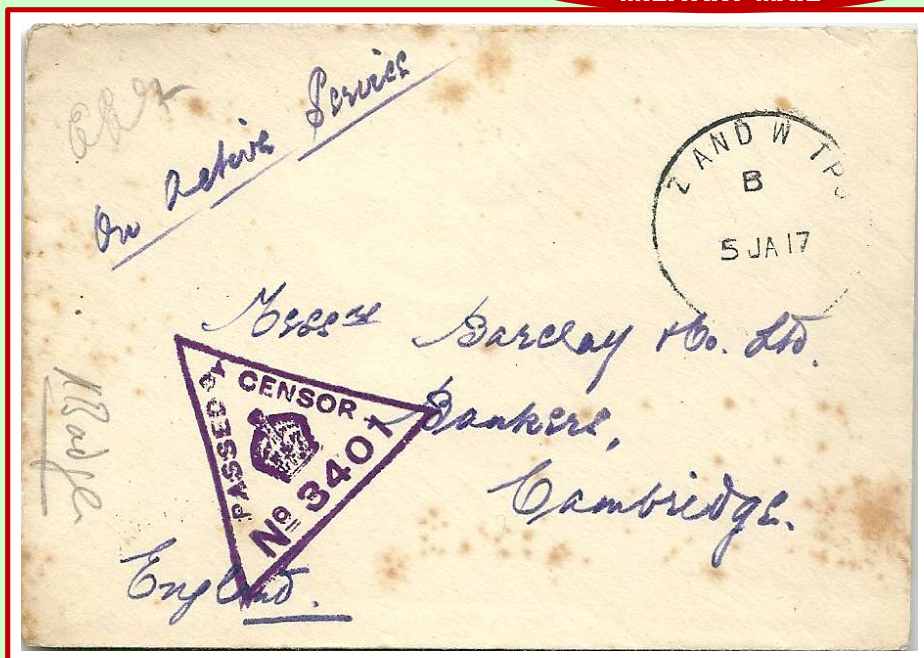 On Active Service
Z AND W TPO
B
5 JA 17
Messrs Barclay & Co. Ltd.
Bankers,
Cambridge.
England.
PASSED BY
CENSOR
No 3401